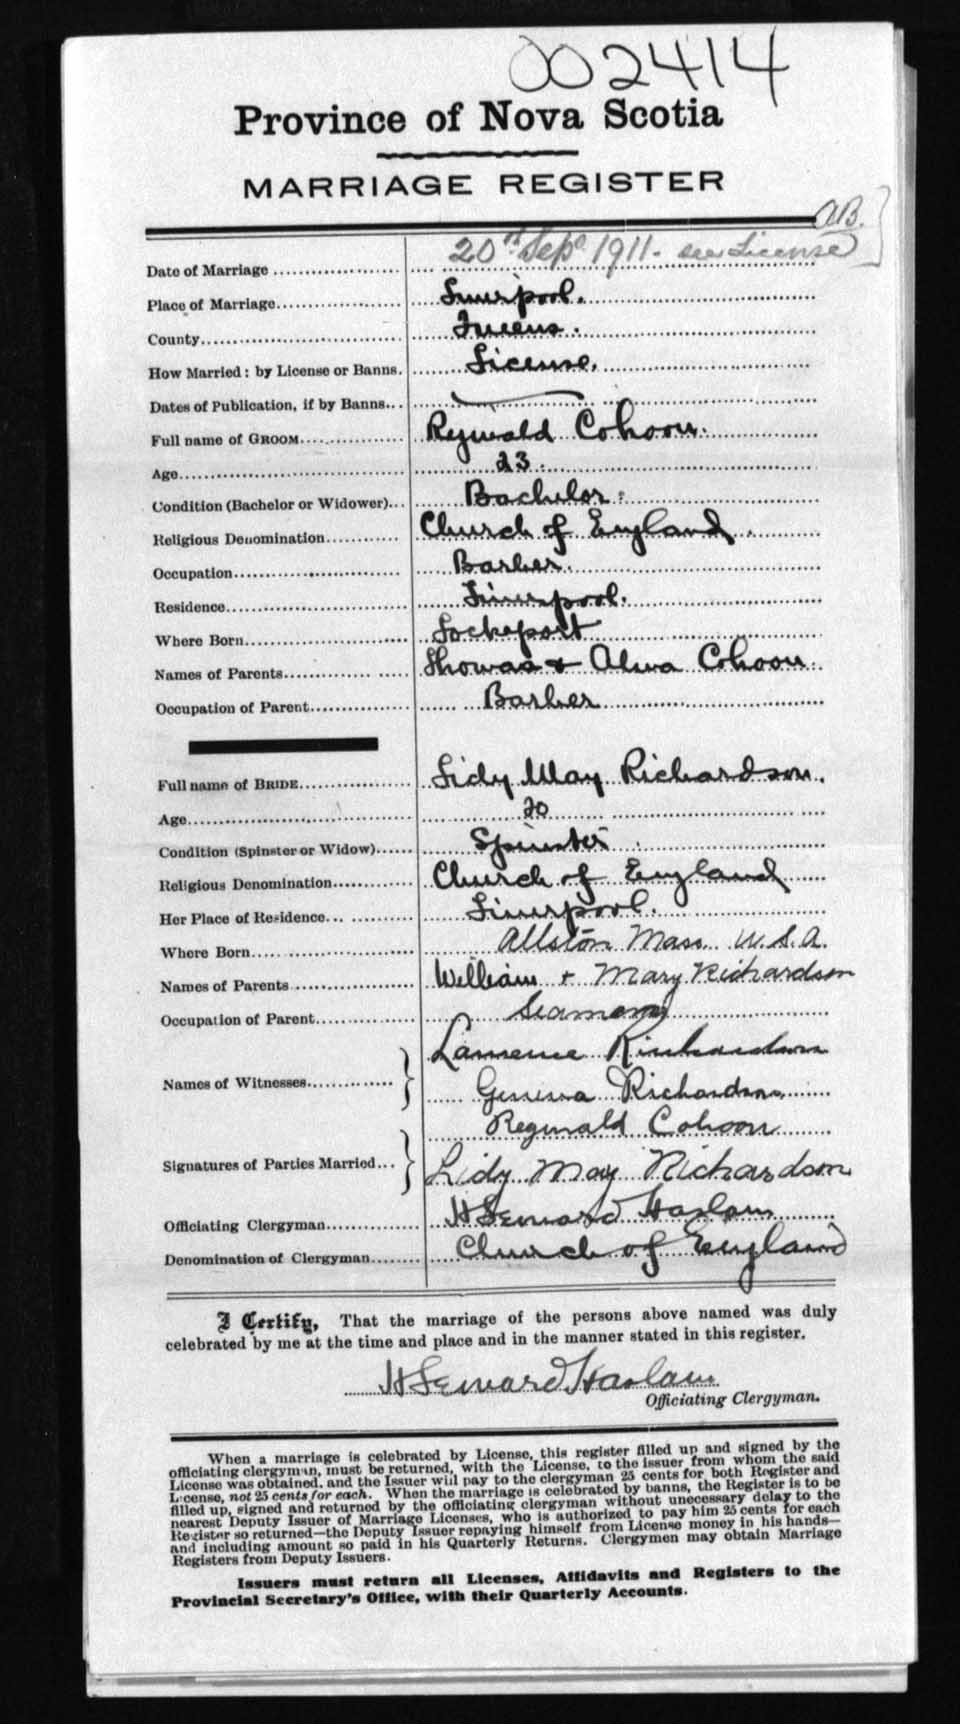 002414
Province of Nova Scotia
MARRIAGE REGISTER
A.B.
Date of Marriage 20th Sept 1911. see License
Place of Marriage Liverpool.
County Queens.
How Married: by License or Banns. License.
Dates of Publication, if by Banns
Full name of GROOM Reginald Cohoon.
Age 23.
Condition (Bachelor or Widower) Bachelor.
Religious Denomination Church of England.
Occupation Barber.
Residence Liverpool.
Where Born Lockeport
Names of Parents Thomas & Alma Cohoon.
Occupation of Parent Barber
Full name of BRIDE Lidy May Richardson.
Age 20
Condition (Spinster or Widow) Spinster
Religious Denomination Church of England
Her Place of Residence Liverpool.
Where Born Allston Mass. U.S.A.
Names of Parents William + Mary Richardson
Occupation of Parent Seaman
Names of Witnesses Lawrence Richardson
Geneva Richardson
Signatures of Parties Married Reginald Cohoon
Lidy May Richardson
Officiating Clergyman H Seward Haslam
Denomination of Clergyman Church of England
I Certify, That the marriage of the persons above named was duly
celebrated by me at the time and place and in the manner stated in this register.
H Seward Haslam
Officiating Clergyman.
When a marriage is celebrated by License, this register filled up and signed by the
officiating clergyman, must be returned, with the License, to the issuer from whom the said
License was obtained, and the Issuer will pay to the clergyman 25 cents for both Register and
License, not 25 cents for each. When the marriage is celebrated by banns, the Register is to be
filled up, signed and returned by the officiating clergyman without unnecessary delay to the
nearest Deputy Issuer of Marriage Licenses, who is authorized to pay him 25 cents for each
Register so returned—the Deputy Issuer repaying himself from License money in his hands—
and including amount so paid in his Quarterly Returns. Clergymen may obtain Marriage
Registers from Deputy Issuers.
Issuers must return all Licenses, Affidavits and Registers to the
Provincial Secretary's Office, with their Quarterly Accounts.